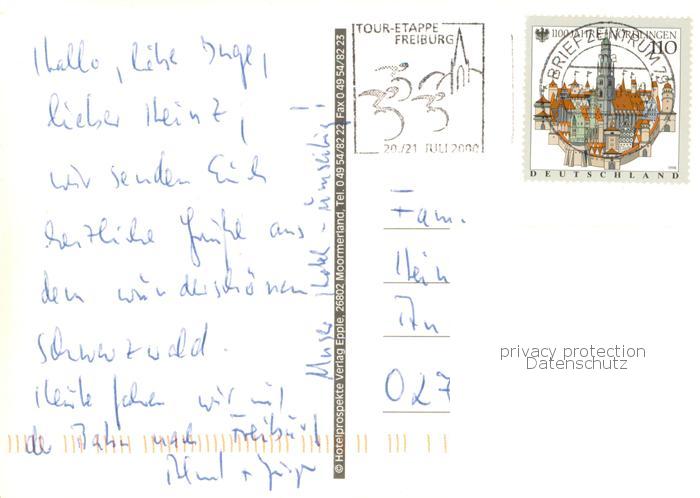 Hallo, liebe Inge,
lieber Heinz,
wir senden Euch
herzliche Grüße aus
dem wunderschönen
Schwarzwald.
Heute fahren wir mit
der Bahn nach Freiburg
Unser Hotel - umseitig!
© Hotelprospekte Verlag Epple, 26802 Moormerland, Tel. 0 49 54/82 22, Fax 0 49 54/82 23
TOUR-ETAPPE
FREIBURG
20./21. JULI 2000
BRIEFZENTRUM 79
1100 JAHRE NÖRDLINGEN
110
DEUTSCHLAND
1998
Fam.
Hein
An
027
privacy protection
Datenschutz